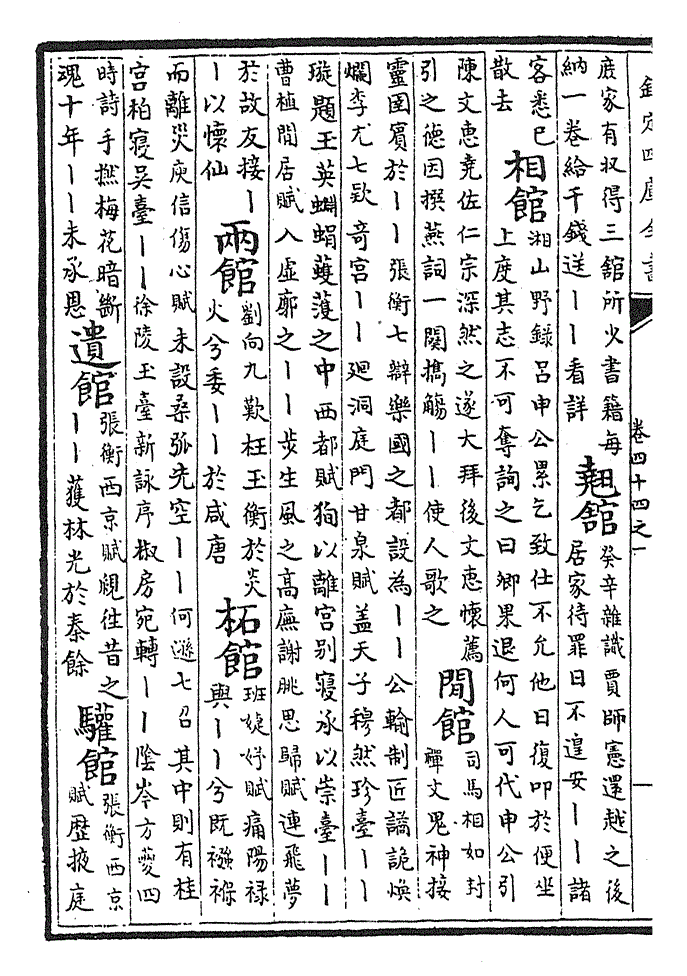 欽定四庫全書
卷四十四之一
庶家有収得三舘所少書籍每
納一卷給千錢送丨丨看詳
翹舘
癸辛雜識賈師憲還越之後
居家待罪日不遑安丨丨諸
客悉已
散去
相館
湘山野錄呂申公累乞致仕不允他日復叩於便坐
上度其志不可奪詢之曰卿果退何人可代申公引
陳文惠堯佐仁宗深然之遂大拜後文惠懷薦
引之德因撰燕詞一闋攜觴丨丨使人歌之
閒館
司馬相如封
禪文鬼神接
靈圉賓於丨丨張衡七辯樂國之都設為丨丨公輸制匠譎詭煥
爛李尤七款竒宮丨丨廻洞庭門甘泉賦盖天子穆然珍臺丨丨
璇題玉英蜵蜎蠖濩之中西都賦徇以離宮别寢承以崇臺丨丨
曹植閒居賦入虛廓之丨丨步生風之高廡謝朓思歸賦連飛夢
於故友接丨
丨以懷仙
兩館
劉向九歎枉玉衡於炎
火兮委丨丨於咸唐
柘館
班婕妤賦痛陽祿
與丨丨兮既襁褓
而離災庾信傷心賦未設桑弧先空丨丨何遜七召其中則有桂
宮柏寢吳臺丨丨徐陵玉臺新詠序椒房宛轉丨丨陰岑方夔四
時詩手撚梅花暗斷
魂十年丨丨未承恩
遺館
張衡西京賦覛往昔之
丨丨獲林光於秦餘
驩館
張衡西京
賦歴掖庭